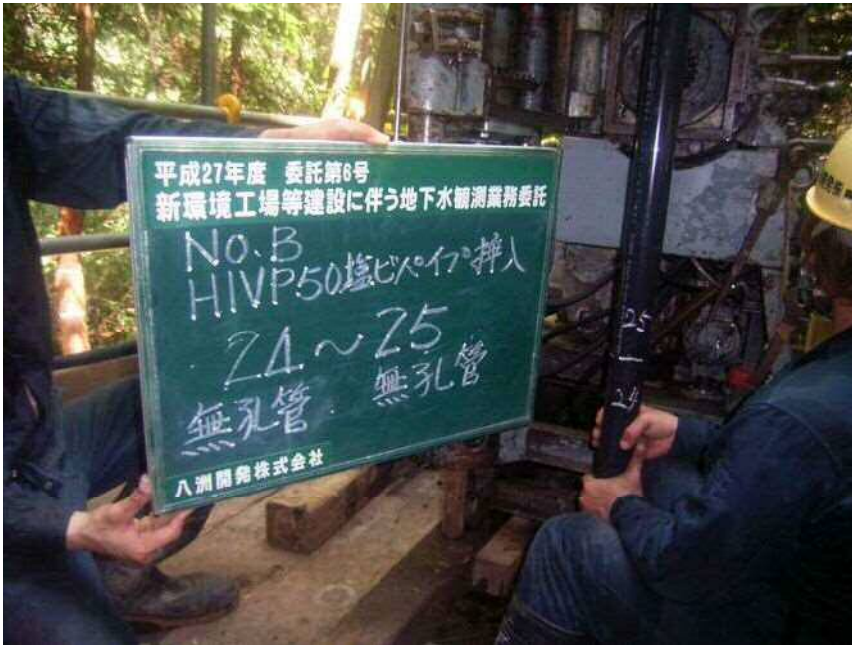 平成27年度 委託第6号
新環境工場等建設に伴う地下水観測業務委託
No.B
HIVP50塩ビパイプ挿入
24～25
無孔管 無孔管
八洲開発株式会社
25
24